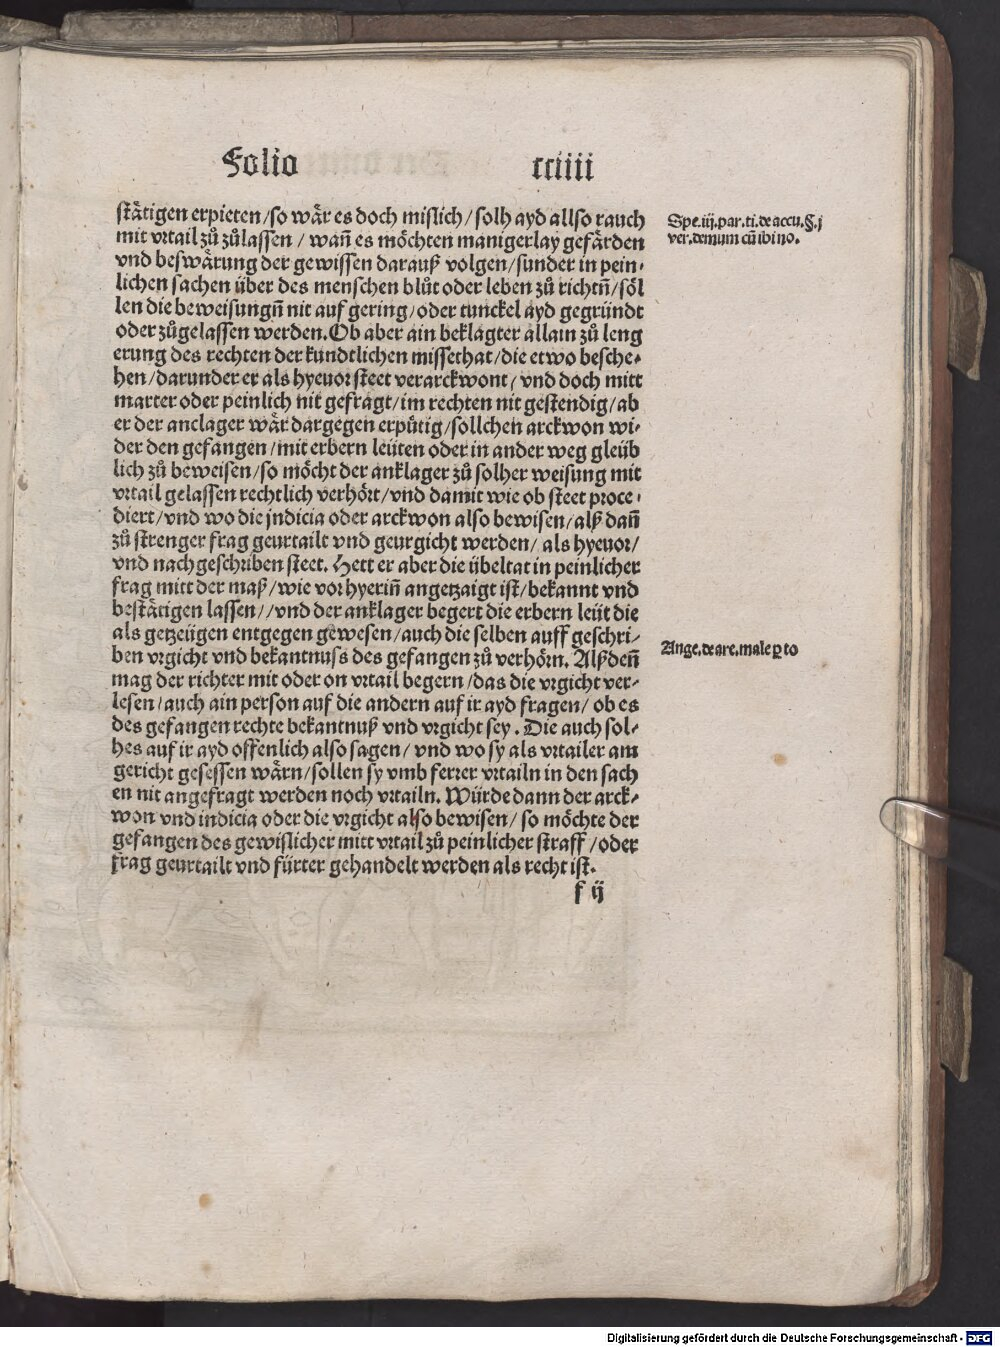 Folio cciiii
stätigen erpieten/so wär es doch mislich/solh ayd allso rauch
mit vrtail zů zůlassen/wañ es möchten manigerlay gefärden
vnd beswärung der gewissen darauß volgen/sunder in pein-
lichen sachen über des menschen blůt oder leben zů richtñ/söl
len die beweisungñ nit auf gering/oder tunckel ayd gegründt
oder zůgelassen werden. Ob aber ain beklagter allain zů leng
erung des rechten der kundtlichen missethat/die etwo besche-
hen/darunder er als hyeuor steet verarckwont/vnd doch mitt
marter oder peinlich nit gefragt/im rechten nit gestendig/ab
er der anclager wär dargegen erpütig/sollchen arckwon wi-
der den gefangen/mit erbern leüten oder in ander weg gleüb
lich zů beweisen/so möcht der anklager zů solher weisung mit
vrtail gelassen rechtlich verhört/vnd damit wie ob steet proce-
diert/vnd wo die jndicia oder arckwon also bewisen/alß dañ
zů strenger frag geurtailt vnd geurgicht werden/als hyeuor/
vnd nachgeschriben steet. Hett er aber die übeltat in peinlicher
frag mitt der maß/wie vorhyeriñ angetzaigt ist/bekannt vnd
bestätigen lassen//vnd der anklager begert die erbern leüt die
als getzeügen entgegen gewesen/auch die selben auff geschri-
ben vrgicht vnd bekantnuss des gefangen zů verhörn. Alßdeñ
mag der richter mit oder on vrtail begern/das die vrgicht ver-
lesen/auch ain person auf die andern auf ir ayd fragen/ob es
des gefangen rechte bekantnuß vnd vrgicht sey. Die auch sol-
hes auf ir ayd offenlich also sagen/vnd wo sy als vrtailer am
gericht gesessen wärn/sollen sy vmb ferrer vrtailn in den sach
en nit angefragt werden noch vrtailn. Würde dann der arck-
won vnd indicia oder die vrgicht also bewisen/so möchte der
gefangen des gewislicher mitt vrtail zů peinlicher straff/oder
frag geurtailt vnd fürter gehandelt werden als recht ist.
f ij
Spe.iij.par.ti.de accu.§.j
ver.demum cũ ibi no.
Ange.de are.male ꝑ to
Digitalisierung gefördert durch die Deutsche Forschungsgemeinschaft - DFG